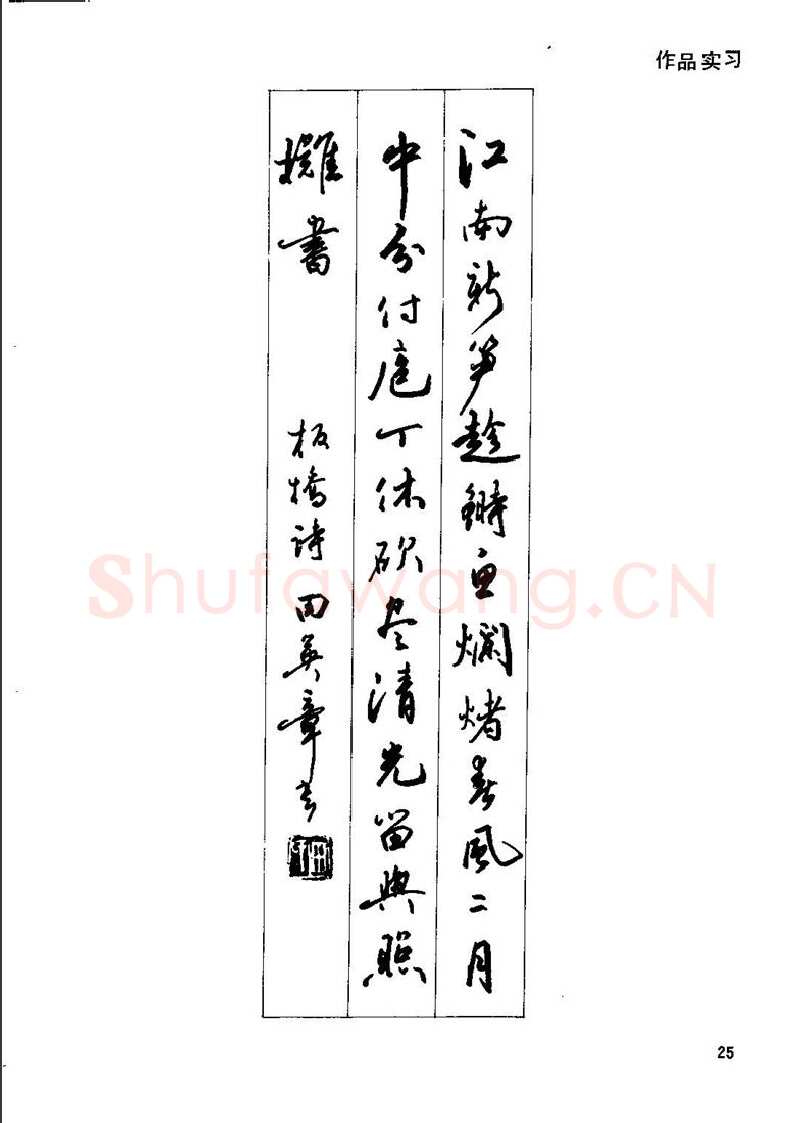 作品实习
江南新笋趁鰣鱼爛煮春風二月
中分付庖丁休砍尽清光留與照
攤書 板橋詩 田英章书
Shufawang.CN
25